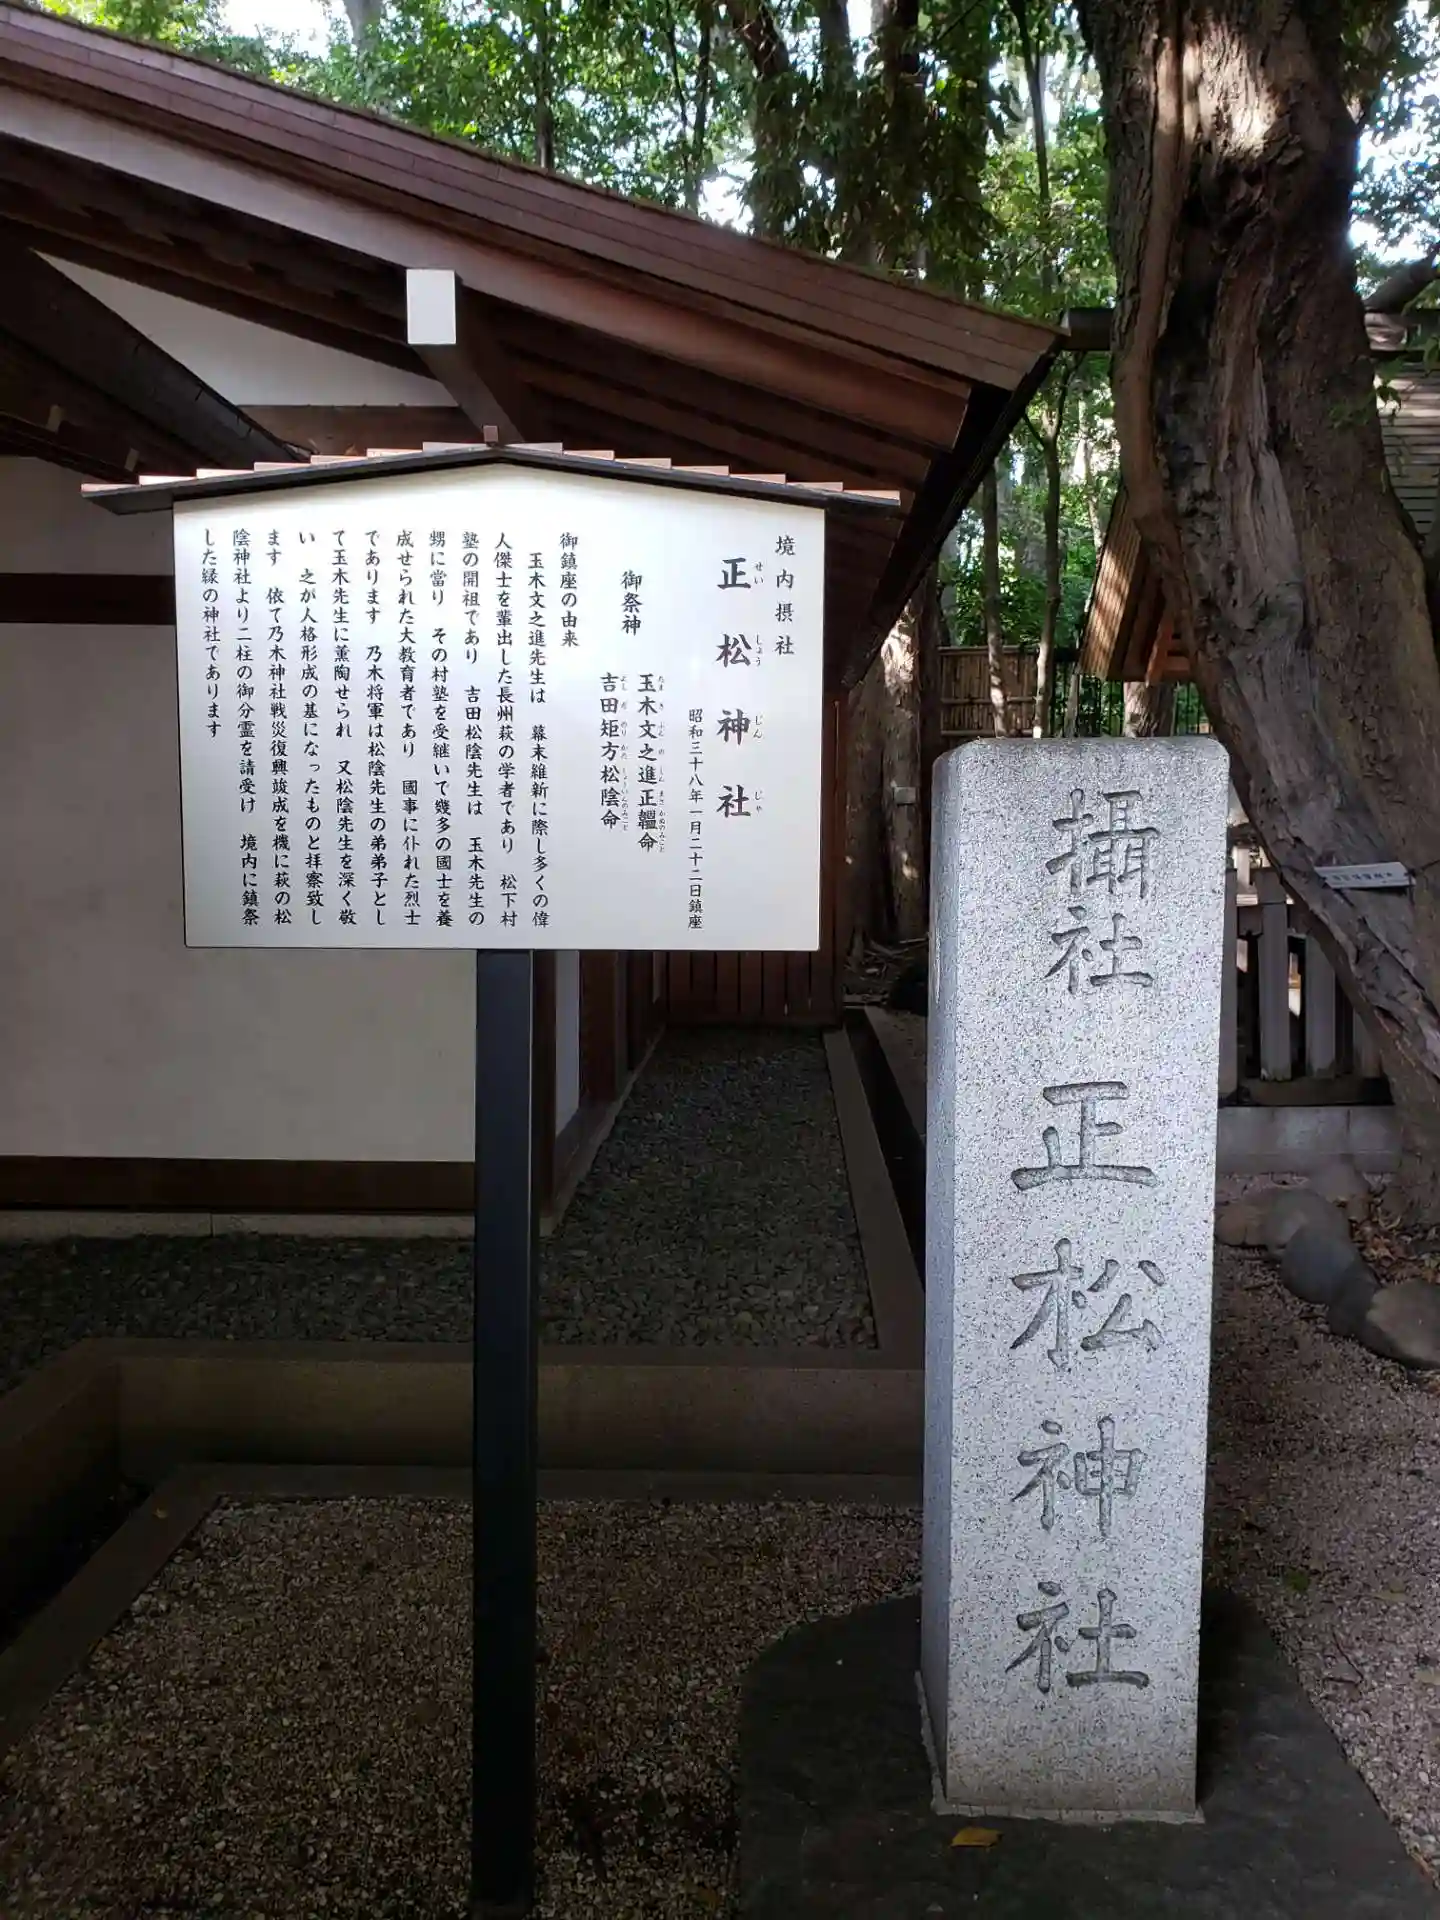 境内摂社
正松神社
せいしょうじんじゃ
昭和三十八年一月二十二日鎮座
御祭神
玉木文之進正韞命
たまきぶんのしんまさかぬのみこと
吉田矩方松陰命
よしだのりかたしょういんのみこと
御鎮座の由来
玉木文之進先生は 幕末維新に際し多くの偉
人傑士を輩出した長州萩の学者であり 松下村
塾の開祖であり 吉田松陰先生は 玉木先生の
甥に當り その村塾を受継いで幾多の國士を養
成せられた大教育者であり 國事に仆れた烈士
であります 乃木将軍は松陰先生の弟弟子とし
て玉木先生に薫陶せられ 又松陰先生を深く敬
い 之が人格形成の基になったものと拝察致し
ます 依て乃木神社戦災復興竣成を機に萩の松
陰神社より二柱の御分霊を請受け 境内に鎮祭
した縁の神社であります
攝社正松神社